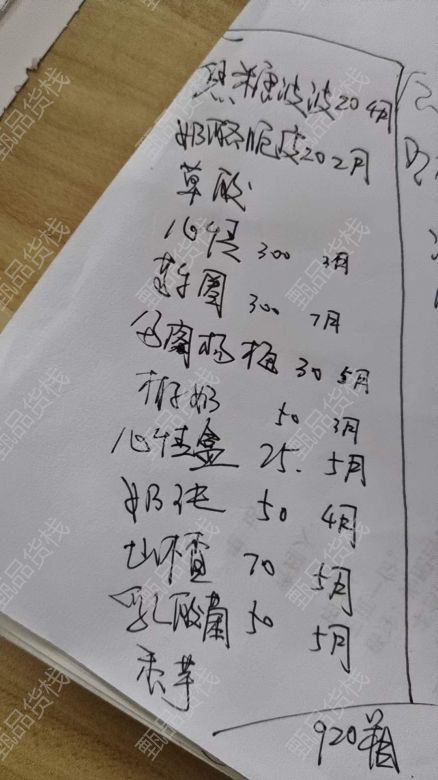 黑糖波波20 4月
奶酪脆皮20 2月
草酸
心情 300 3月
甜圈 300 7月
杨梅 30 5月
椰奶 50 3月
心情盒 25. 5月
奶砖 50 4月
山楂 70 5月
乳酸菌 50 5月
香芋
920箱
甄品货栈